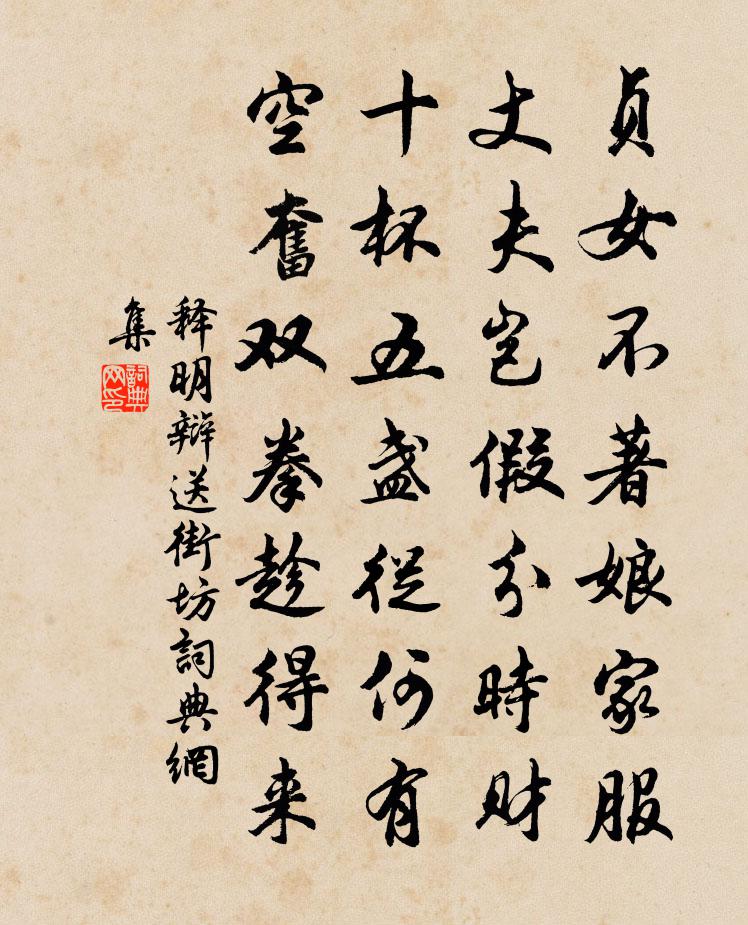 貞女不著娘家服
丈夫豈假分時財
十杯五盞從何有
空奮双拳趁得来
释明辯送街坊詞典網
集
詞典
网印